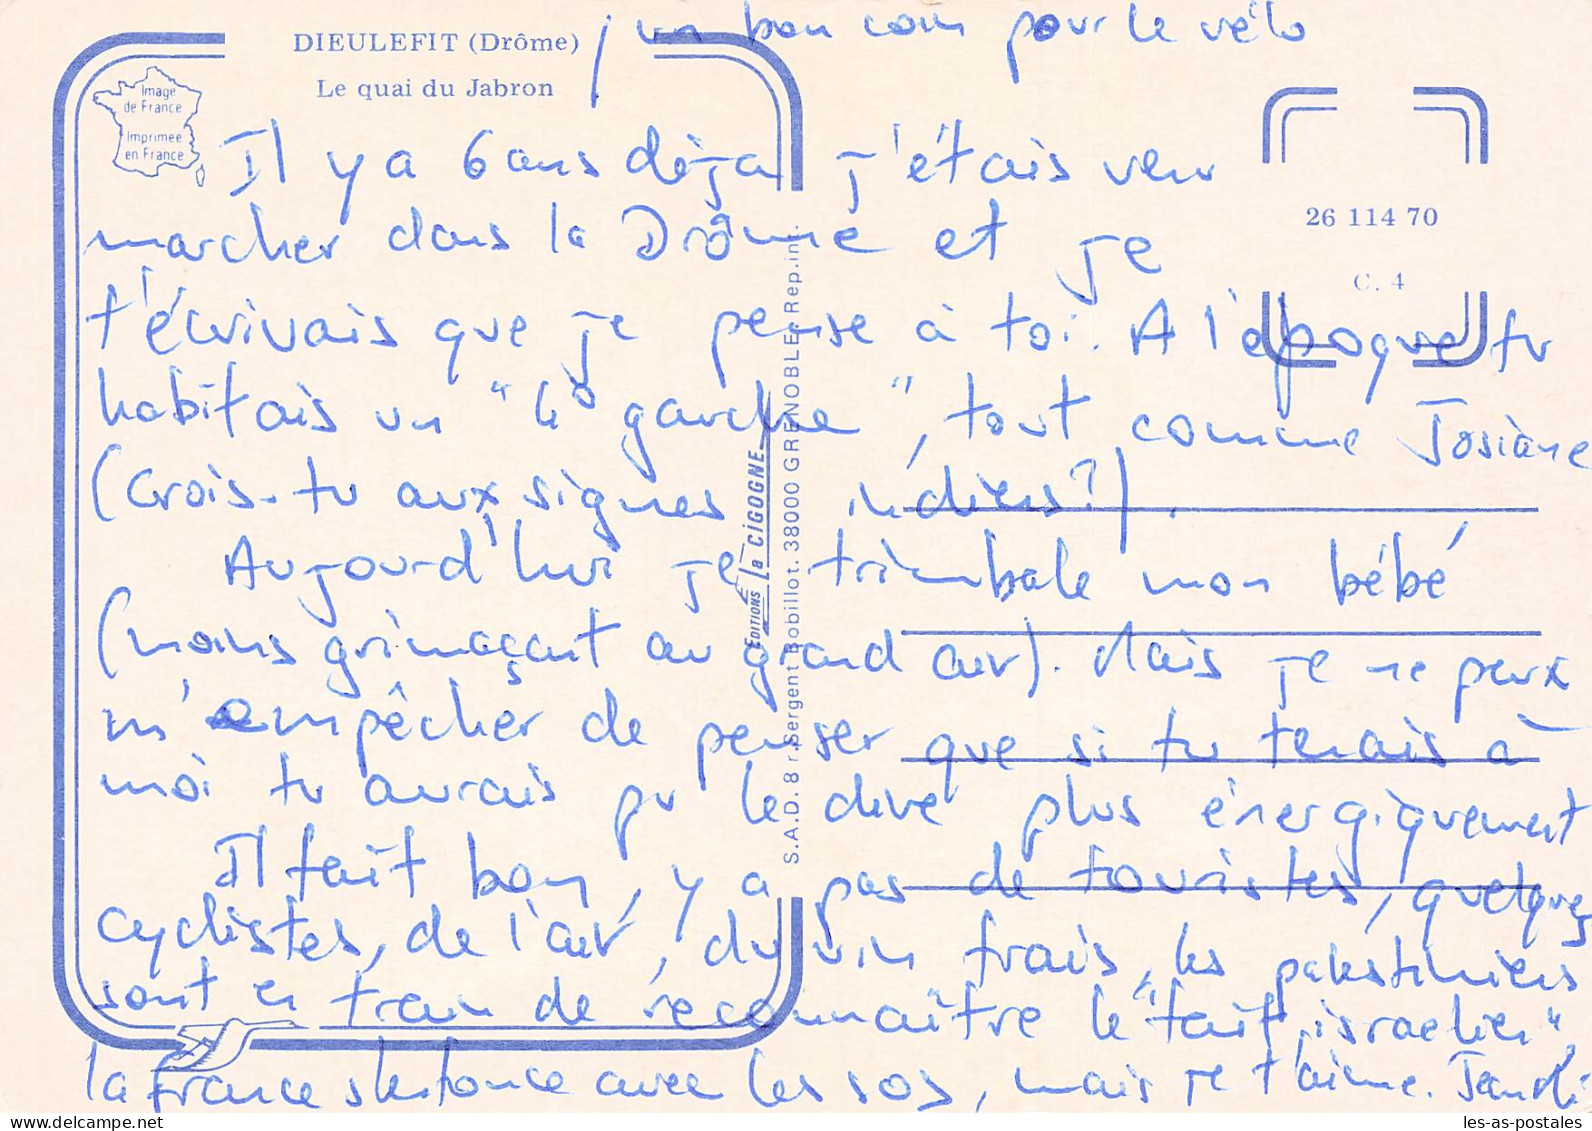 un bon coin pour le vélo
DIEULEFIT (Drôme)
Le quai du Jabron
Image
de France
Imprimée
en France
26 114 70
C. 4
Il y a 6 ans déjà j'étais venu
marcher dans la Drôme et je
t'écrivais que je pense à toi. A l'époque tu
habitais un "4° gauche", tout comme Josiane
(crois-tu aux signes indiens?).
Aujourd'hui je trimbale mon bébé
(moins grimaçant au grand air). Mais je ne peux
m'empêcher de penser que si tu tenais à
moi tu aurais pu le dire plus énergiquement
Il fait bon, y a pas de touristes, quelques
cyclistes, de l'air, du vin frais, les palestiniens
sont en train de reconnaître le "fait israelien"
la france s'enfonce avec les sos, mais je t'aime.
EDITIONS la CIGOGNE
S.A.D. 8 r. Sergent Bobillot. 38000 GRENOBLE. Rep.int.
les-as-postales